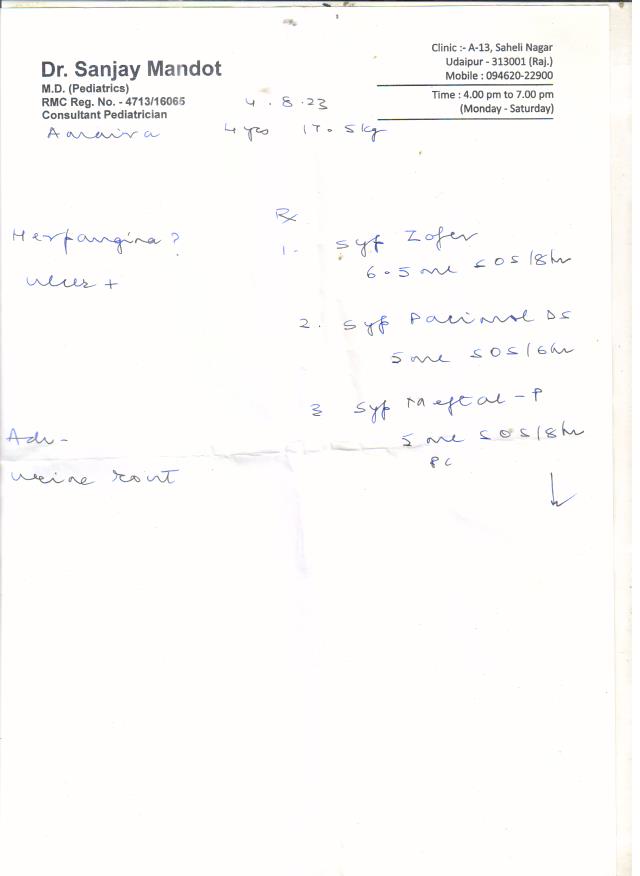 Dr. Sanjay Mandot
M.D. (Pediatrics)
RMC Reg. No. - 4713/16065
Consultant Pediatrician
Clinic :- A-13, Saheli Nagar
Udaipur - 313001 (Raj.)
Mobile : 094620-22900
Time : 4.00 pm to 7.00 pm
(Monday - Saturday)
4.8.23
4 yrs 17.5 kg
Rx
Herpangina ?
ulcer +
1. Syp Zofer
6.5 ml SOS/8hr
2. Syp Pacimol DS
5 ml SOS/6hr
3 Syp Meftal-P
5 ml SOS/8hr
PC
Adv-
urine rout